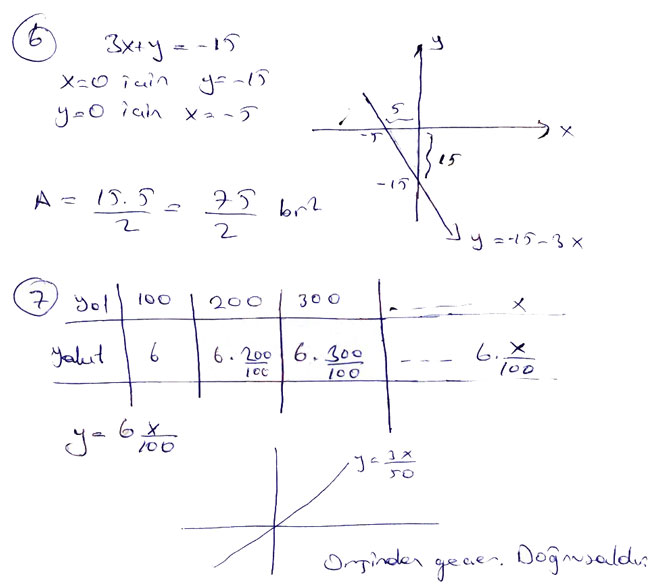 6
3x+y = -15
x=0 için y=-15
y=0 için x=-5
A = 15.5/2 = 75/2 br²
y
5
x
-5
15
-15
y = -15-3x
7
Yol 100 200 300 . - - - x
Yakıt 6 6.200/100 6.300/100 - - - - 6.x/100
y = 6 x/100
y = 3x/50
Orijinden geçer. Doğrusaldır.